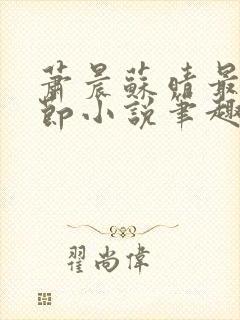 蕭晨蘇晴最
節小說筆趣
翟尚偉